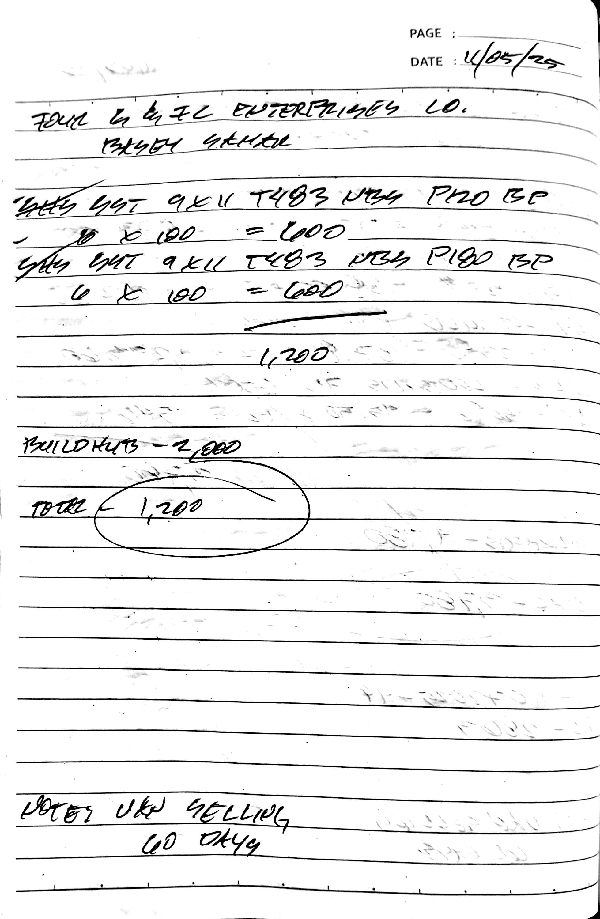 PAGE :
DATE : 4/05/25
FOUR G & FC ENTERPRISES CO.
BASEY SAMAR
SHT 9X11 T483 NBS P120 BP
6 X 100 = 600
SHT 9X11 T483 NBS P180 BP
6 X 100 = 600
1,200
BUILDHUB - 2,000
TOTAL - 1,200
NOTES VAN SELLING
60 DAYS